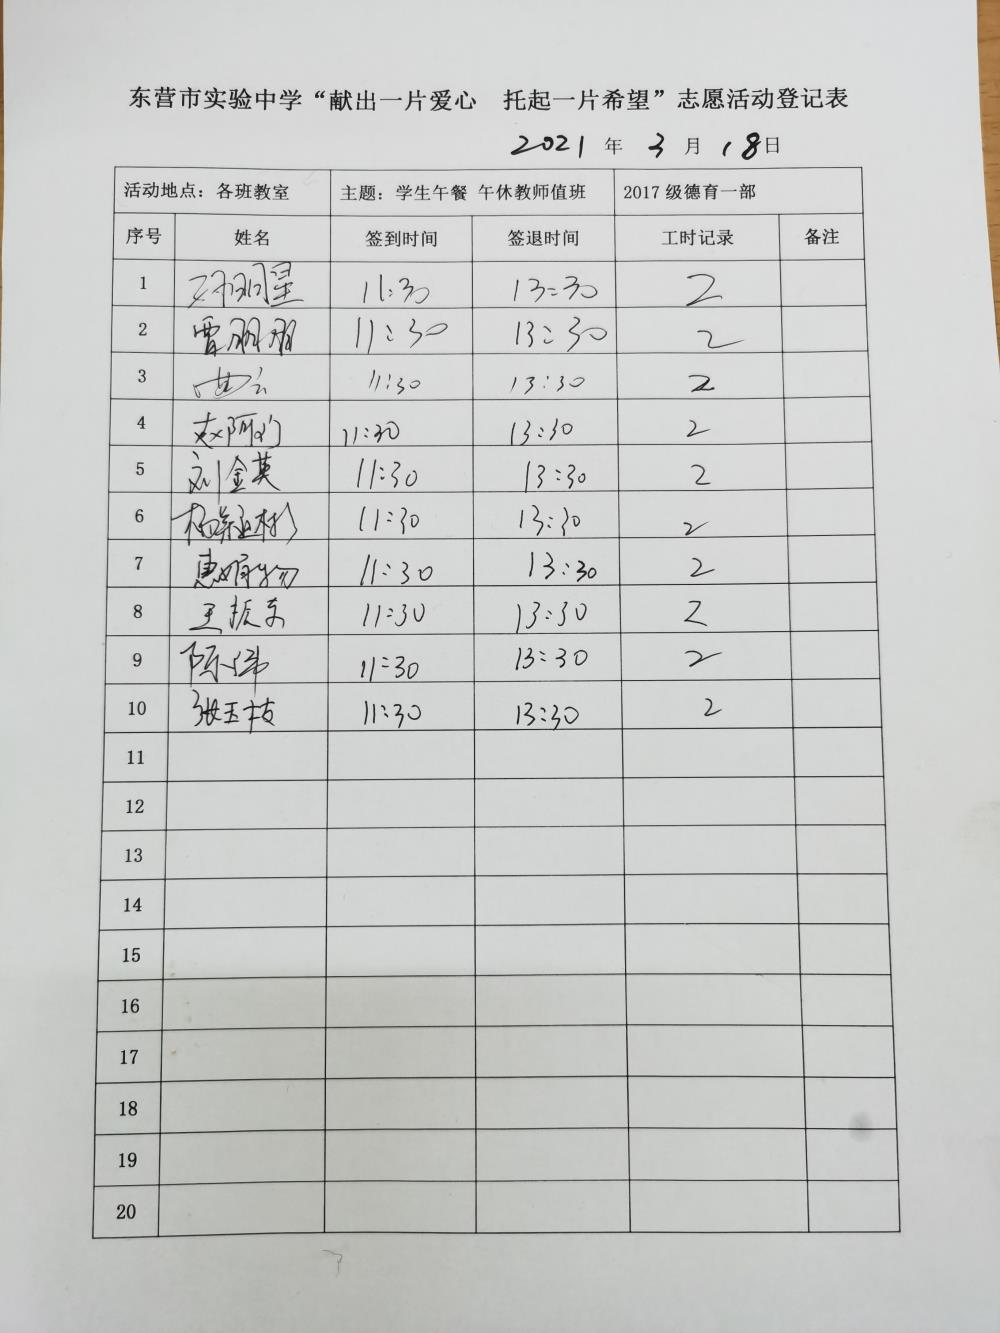 东营市实验中学“献出一片爱心 托起一片希望”志愿活动登记表
2021 年 3 月 18 日
活动地点：各班教室 主题：学生午餐 午休教师值班 2017 级德育一部
序号 姓名 签到时间 签退时间 工时记录 备注
1 明星 11:30 13:30 2
2 贾朋朋 11:30 13:30 2
3 曲云 11:30 13:30 2
4 赵阿 11:30 13:30 2
5 刘金英 11:30 13:30 2
6 杨 11:30 13:30 2
7 惠 11:30 13:30 2
8 王振东 11:30 13:30 2
9 陈伟 11:30 13:30 2
10 张玉枝 11:30 13:30 2
11
12
13
14
15
16
17
18
19
20